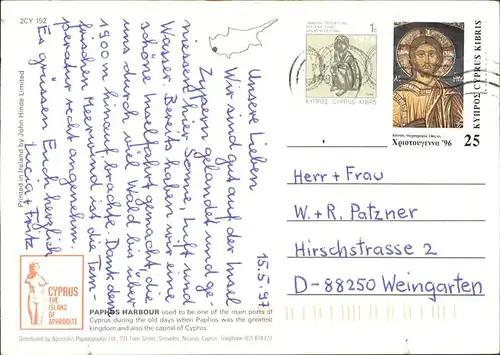 2CY 152
Printed in Ireland by John Hinde Limited
15.5.97
Unsere Lieben
Wir sind gut auf der Insel
Zypern gelandet und ge-
niessen hier Sonne, Luft und
Wasser. Bereits haben wir eine
schöne Inselfahrt gemacht, die
uns durch viel Wald bis über
1900 m hinauf brachte. Dank dem
frischen Meerwind ist die Tem-
peratur recht angenehm.
Es grüssen Euch herzlich
Lucia + Fritz
CYPRUS
THE
ISLAND OF
APHRODITE
PAPHOS HARBOUR used to be one of the main ports of
Cyprus during the old days when Paphos was the greatest
kingdom and also the capital of Cyprus.
Distributed by Apostolos Papagopoulos Ltd., Strovolos, Nicosia, Cyprus
1c
ΚΥΠΡΟΣ CYPRUS KIBRIS
ΚΥΠΡΟΣ CYPRUS KIBRIS
Χριστούγεννα '96
25
Herr + Frau
W. + R. Patzner
Hirschstrasse 2
D-88250 Weingarten